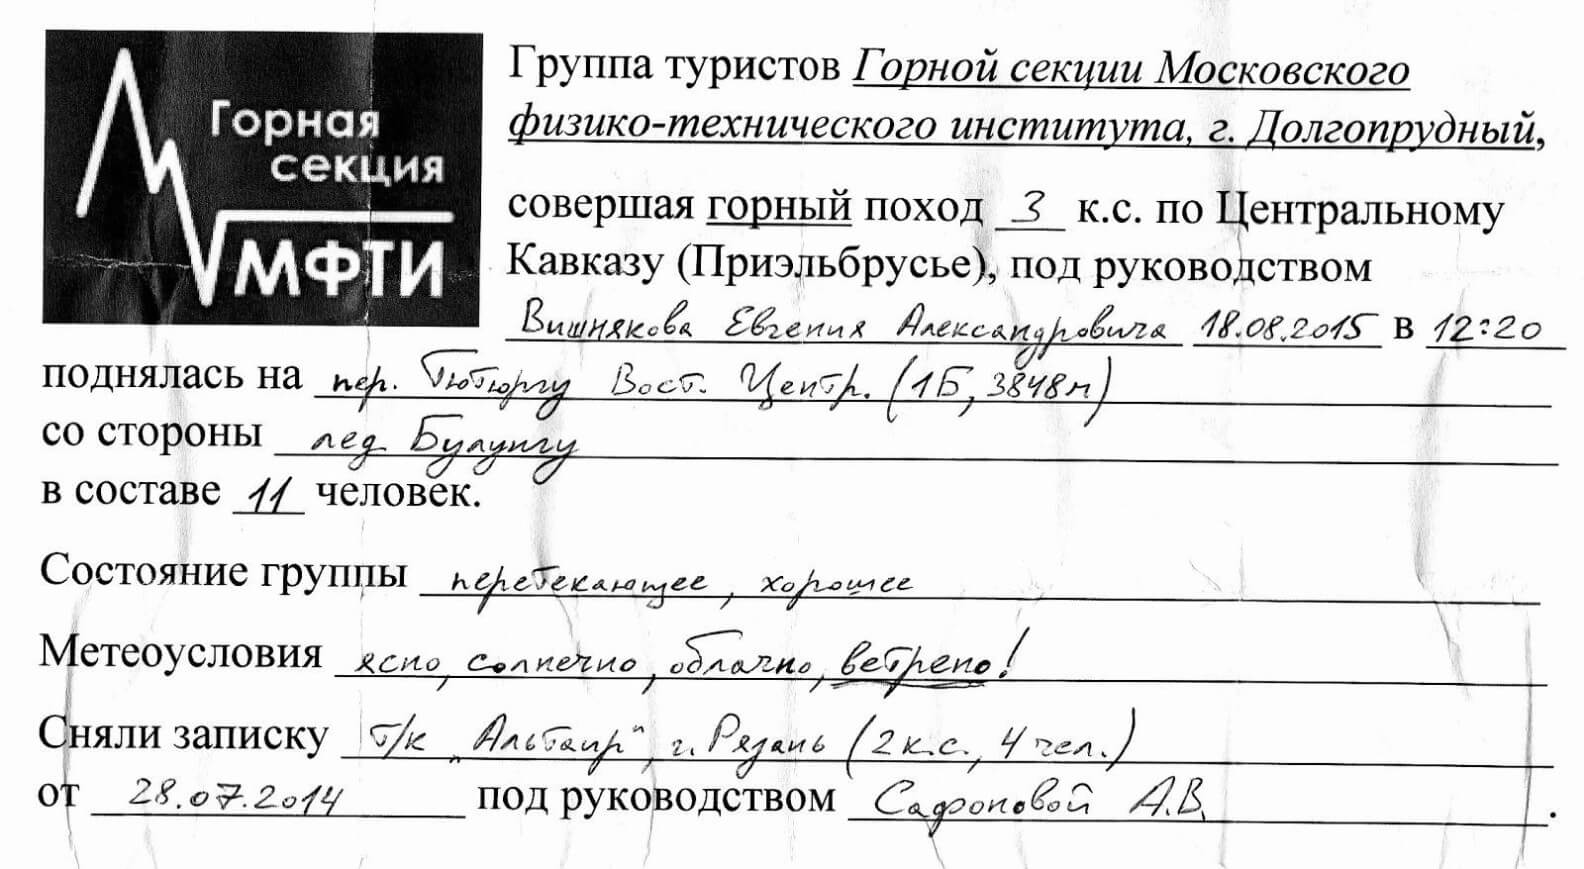 Горная
секция
МФТИ
Группа туристов Горной секции Московского
физико-технического института, г. Долгопрудный,
совершая горный поход 3 к.с. по Центральному
Кавказу (Приэльбрусье), под руководством
Вишнякова Евгения Александровича 18.08.2015 в 12:20
поднялась на пер. Тютюргу Вост. Центр. (1Б, 3848м)
со стороны лед. Булунгу
в составе 11 человек.
Состояние группы перетекающее, хорошее
Метеоусловия ясно, солнечно, облачно, ветрено!
Сняли записку т/к „Альтаир", г. Рязань (2 к.с., 4 чел.)
от 28.07.2014 под руководством Сафоновой А.В.